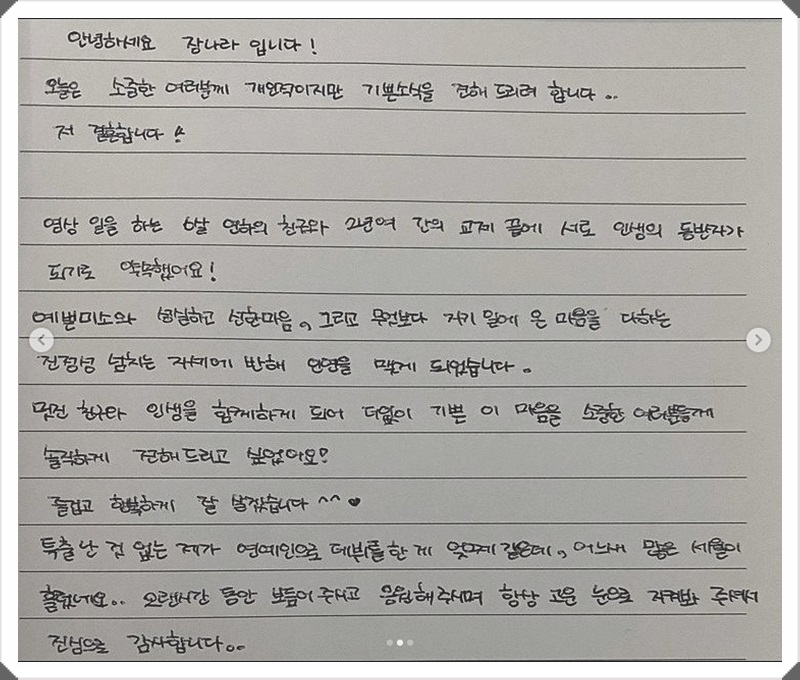 안녕하세요 장나라 입니다!
오늘은 소중한 여러분께 개인적이지만 기쁜소식을 전해 드리려 합니다..
저 결혼합니다!
영상 일을 하는 6살 연하의 친구와 2년여 간의 교제 끝에 서로 인생의 동반자가
되기로 약속했어요!
예쁜미소와 성실하고 선한마음, 그리고 무엇보다 자기 일에 온 마음을 다하는
진정성 넘치는 자세에 반해 인연을 맺게 되었습니다.
멋진 친구와 인생을 함께하게 되어 더없이 기쁜 이 마음을 소중한 여러분들께
솔직하게 전해드리고 싶었어요!
즐겁고 행복하게 잘 살겠습니다 ^^ ♥
특출난 것 없는 제가 연예인으로 데뷔를한 게 엊그제 같은데, 어느새 많은 세월이
흘렀네요.. 오랜시간 동안 보듬어 주시고 응원해주시며 항상 고운 눈으로 지켜봐 주셔서
진심으로 감사합니다..